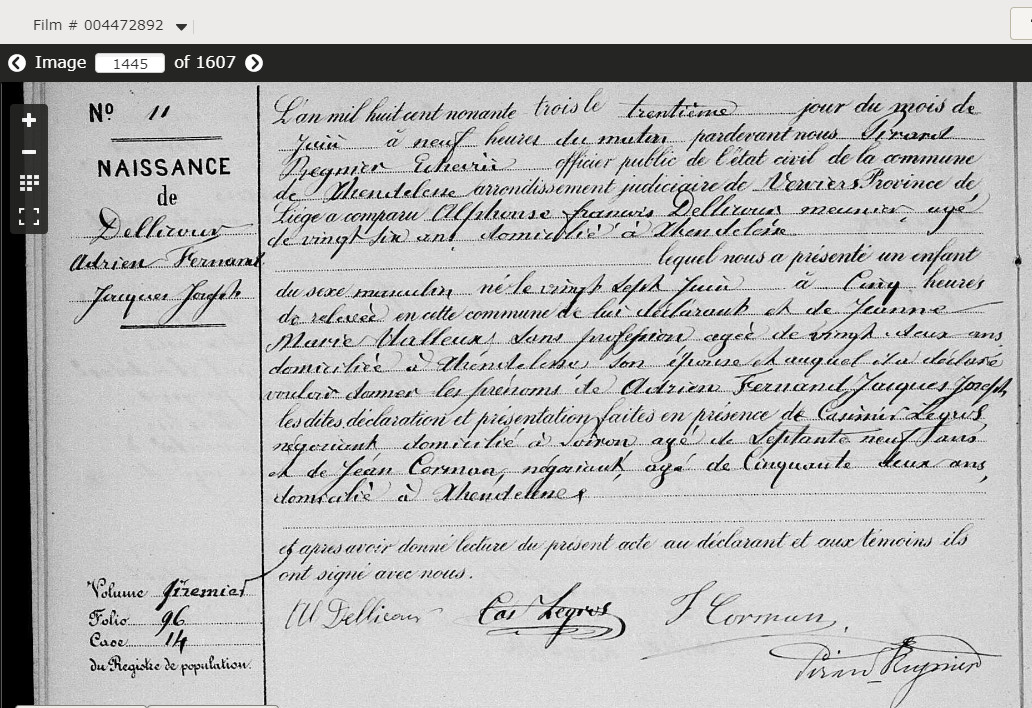 Film # 004472892
Image 1445 of 1607
Nº 11
NAISSANCE
de
Dellicour
Adrien Fernand
Jacques Joseph
L'an mil huit cent nonante trois le trentième jour du mois de
Juin à neuf heures du matin pardevant nous Pirard
Regnier Echevin officier public de l'état civil de la commune
de Xhendelesse arrondissement judiciaire de Verviers Province de
Liège a comparu Alphonse françois Dellicour meunier, agé
de vingt six ans domicilié à Xhendelesse
lequel nous a présenté un enfant
du sexe masculin né le vingt sept Juin à Cinq heures
de relevée en cette commune de lui déclarant et de Jeanne
Marie Halleux, sans profession agée de vingt deux ans
domiciliée à Xhendelesse, son épouse et auquel il a déclaré
vouloir donner les prénoms de Adrien Fernand Jacques Joseph,
les dites déclaration et présentation faites en présence de Casimir Legros,
négociant, domicilié à Soiron agé de Septante neuf ans
et de Jean Corman, négociant, agé de Cinquante deux ans,
domicilié à Xhendelesse
et apres avoir donné lecture du présent acte au déclarant et aux témoins ils
ont signé avec nous.
Volume premier
Folio 96
Case 14
du Registre de population.
Dellicour Cas Legros J Corman
Pirard Regnier